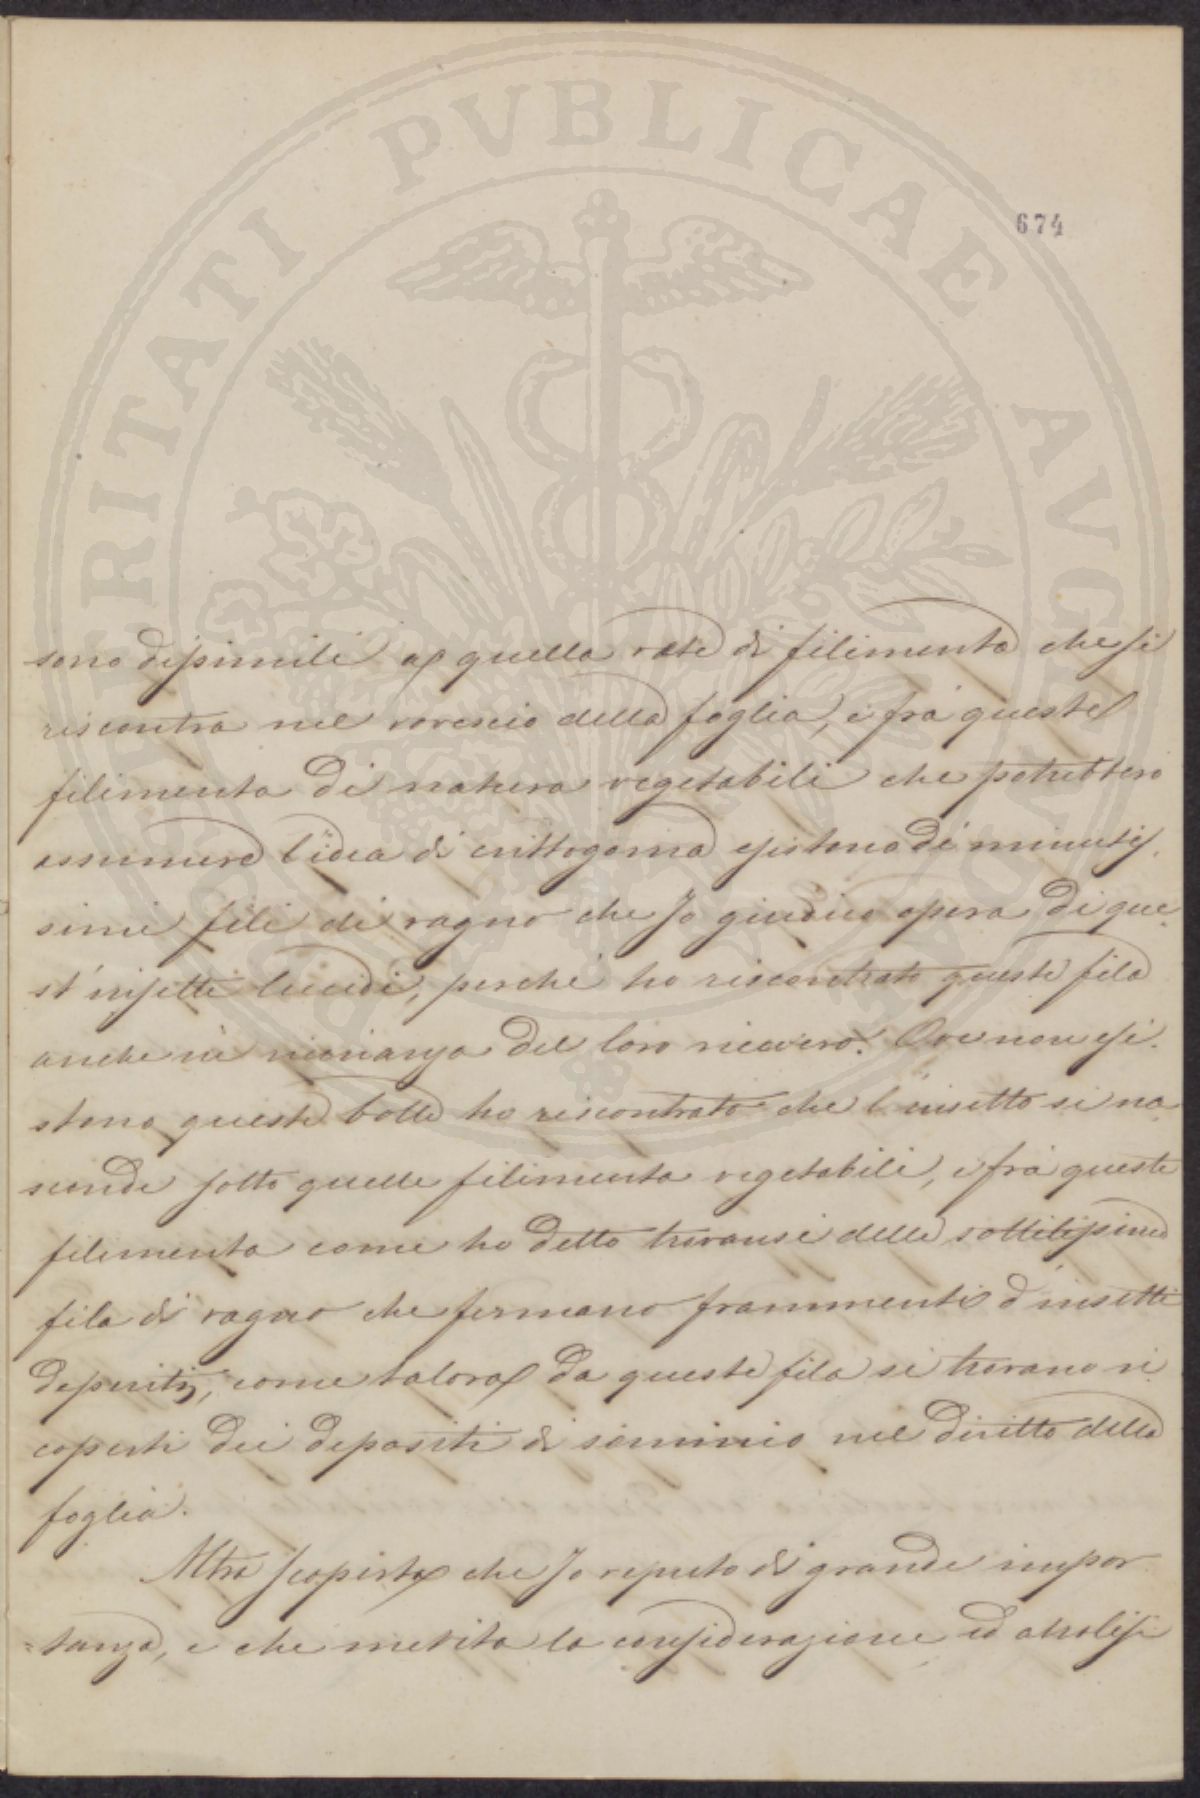 PROSPERITATI PVBLICAE AVGENDAE
674
sono dissimili a quella rete di filimenta che si
riscontra nel rovescio della foglia, e frà queste
filimenta di natura vegetabili che potrebbero
assumere l'idea di crittogama esistono di minutis,
simi fili di ragno che Jo giudico opera di que,
st'insetti lucidi, perchè ho riscontrato queste fila
anche in vicinanza del loro ricovero. Ove non esi,
stono queste bolle ho riscontrato che l'insetto si na,
sconde sotto quelle filimenta vegetabili, e frà queste
filimenta come ho detto trovansi delle sottilissime
fila di ragno che fermano frammenti d'insetti
deperiti, come talora da queste fila si trovano ri
coperti dei depositi di seminio nel diritto della
foglia.
Altra scoperta che Jo reputo di grande impor
=tanza, e che merita la considerazione ed analisi